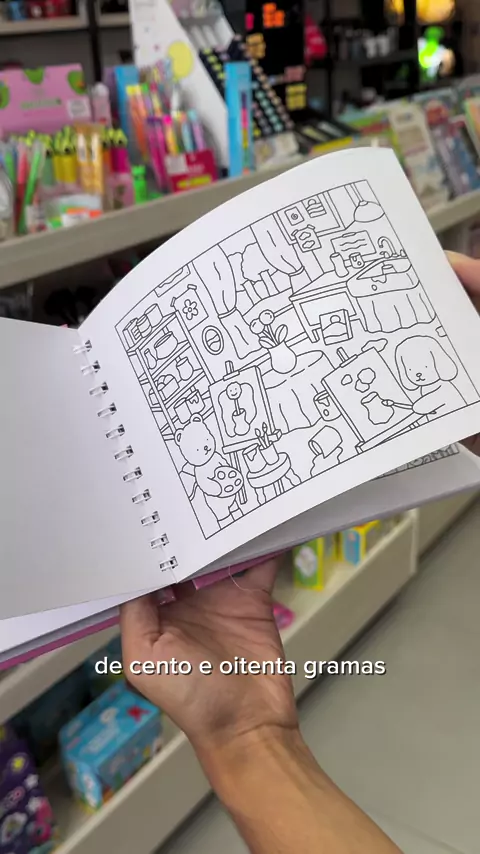 de cento e oitenta gramas